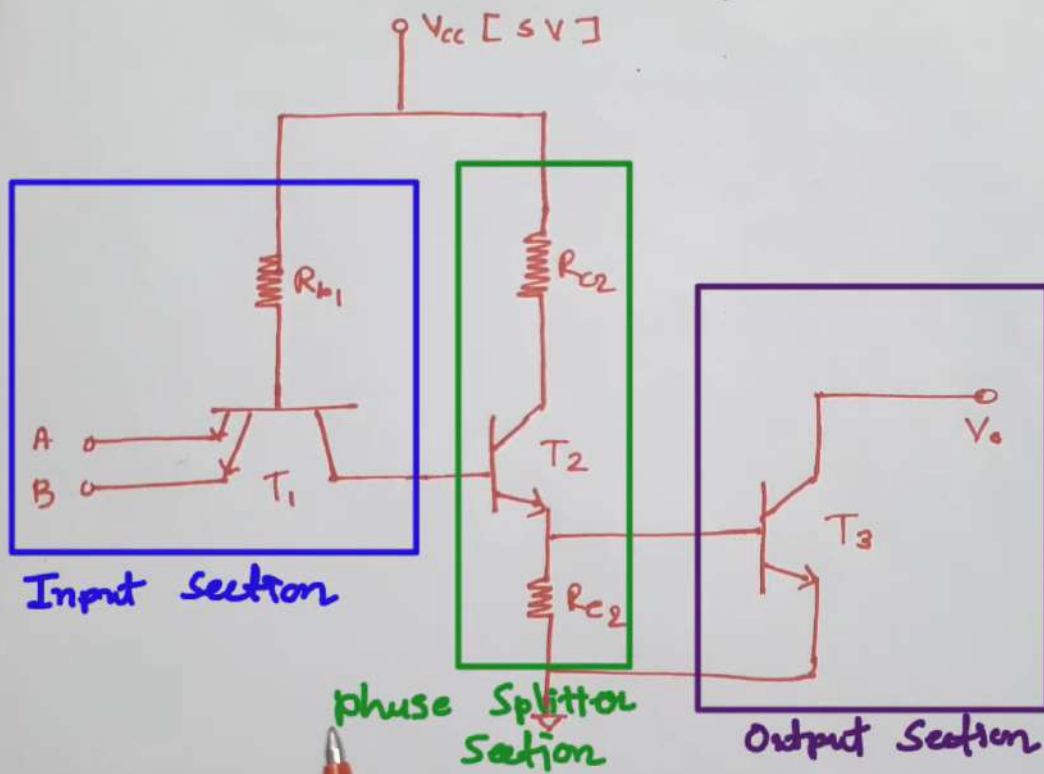 Vcc [ 5V ]
Rb1
Rc2
A
B
T1
T2
V0
T3
Re2
Input Section
phuse Splitter
Section
Output Section